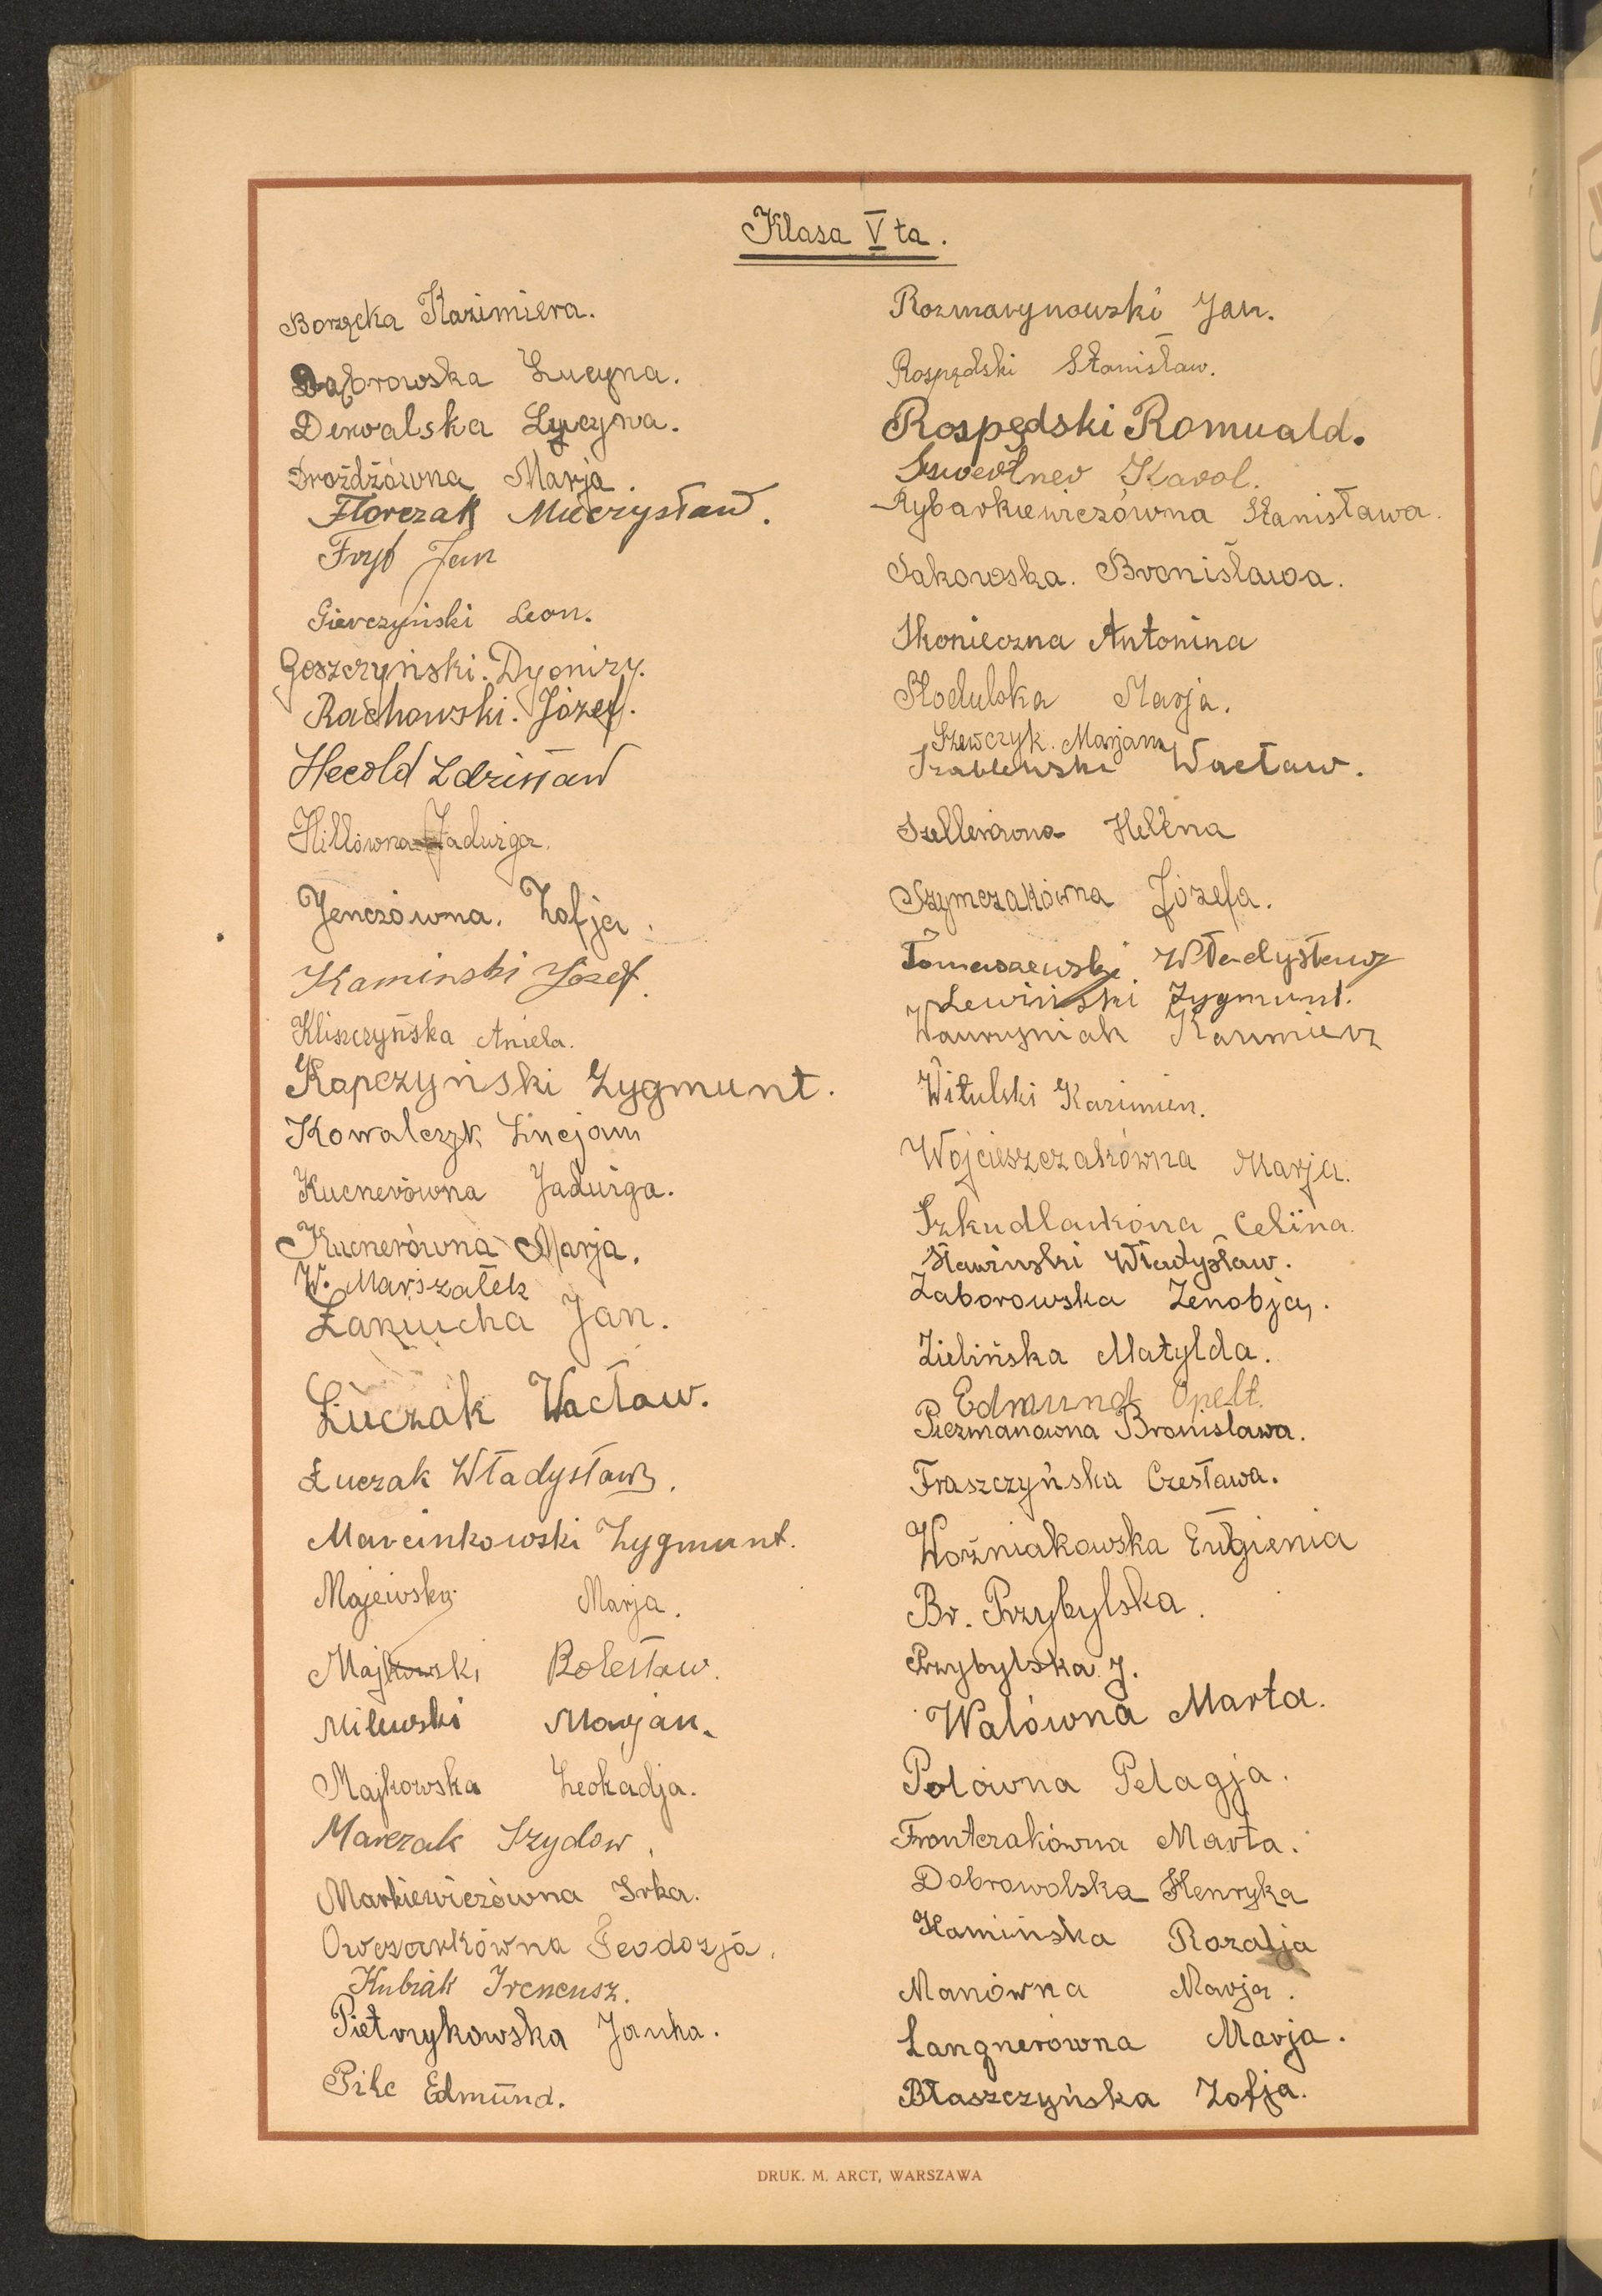 Klasa V ta.
Borzęcka Kazimiera.
Dąbrowska Lucyna.
Derwalska Lucyna.
Drożdżówna Marja.
Florczak Mieczysław.
Fryb Jan
Gierczyński Leon.
Goszczyński. Dyonizy.
Rachowski. Józef.
Hecold Zdzisław
Hillówna Jadwiga.
Jenczówna. Zofja.
Kaminski Józef.
Kliszczyńska Aniela.
Kopczyński Zygmunt.
Kowalczyk Lucjam
Kucnerówna Jadwiga.
Kucnerówna Marja.
W. Marszałek
Łakucha Jan.
Łuczak Wacław.
Łuczak Władysław.
Marcinkowski Zygmunt.
Majewska Marja.
Majkowski Bolesław.
Milewski Marjan.
Majkowska Leokadja.
Marczak Izydor.
Markiewiczówna Irka.
Owczarkówna Feodozja.
Kubiak Ireneusz.
Pietrzykowska Janka.
Pilc Edmund.
Rozmarynowski Jan.
Rospędski Stanisław.
Rospędski Romuald.
Karol.
Rybarkiewiczówna Stanisława.
Sakowska. Bronisława.
Skonieczna Antonina
Słodulska Marja.
Szewczyk. Marjam
Szablewski Wacław.
Szellerówna Helena
Szymczakówna Józefa.
Tomaszewski Władysław
Lewiński Zygmunt.
Wawrzyniak Kazimierz
Witulski Kazimierz.
Wojcieszczakówna Marja.
Szkudlarkówna Celina.
Sławinski Władysław.
Zaborowska Zenobja.
Zielińska Matylda.
Edmund Opelt.
Piezmanówna Bronisława.
Fraszczyńska Czesława.
Woźniakowska Eugienia
Br. Przybylska.
Przybylska J.
Walówna Marta.
Polówna Pelagja.
Frontczakówna Marta.
Dobrowolska Henryka
Kamińska Rozalja
Manówna Marja.
Langnerówna Marja.
Błaszczyńska Zofja.
DRUK. M. ARCT, WARSZAWA